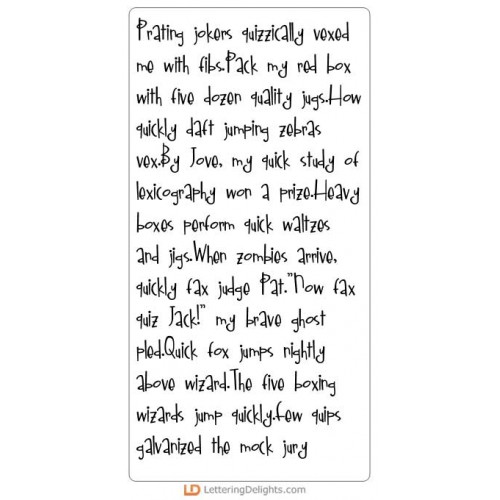 Prating jokers quizzically vexed
me with fibs.Pack my red box
with five dozen quality jugs.How
quickly daft jumping zebras
vex.By Jove, my quick study of
lexicography won a prize.Heavy
boxes perform quick waltzes
and jigs.When zombies arrive,
quickly fax judge Pat."Now fax
quiz Jack!" my brave ghost
pled.Quick fox jumps nightly
above wizard.The five boxing
wizards jump quickly.Few quips
galvanized the mock jury
LD LetteringDelights.com